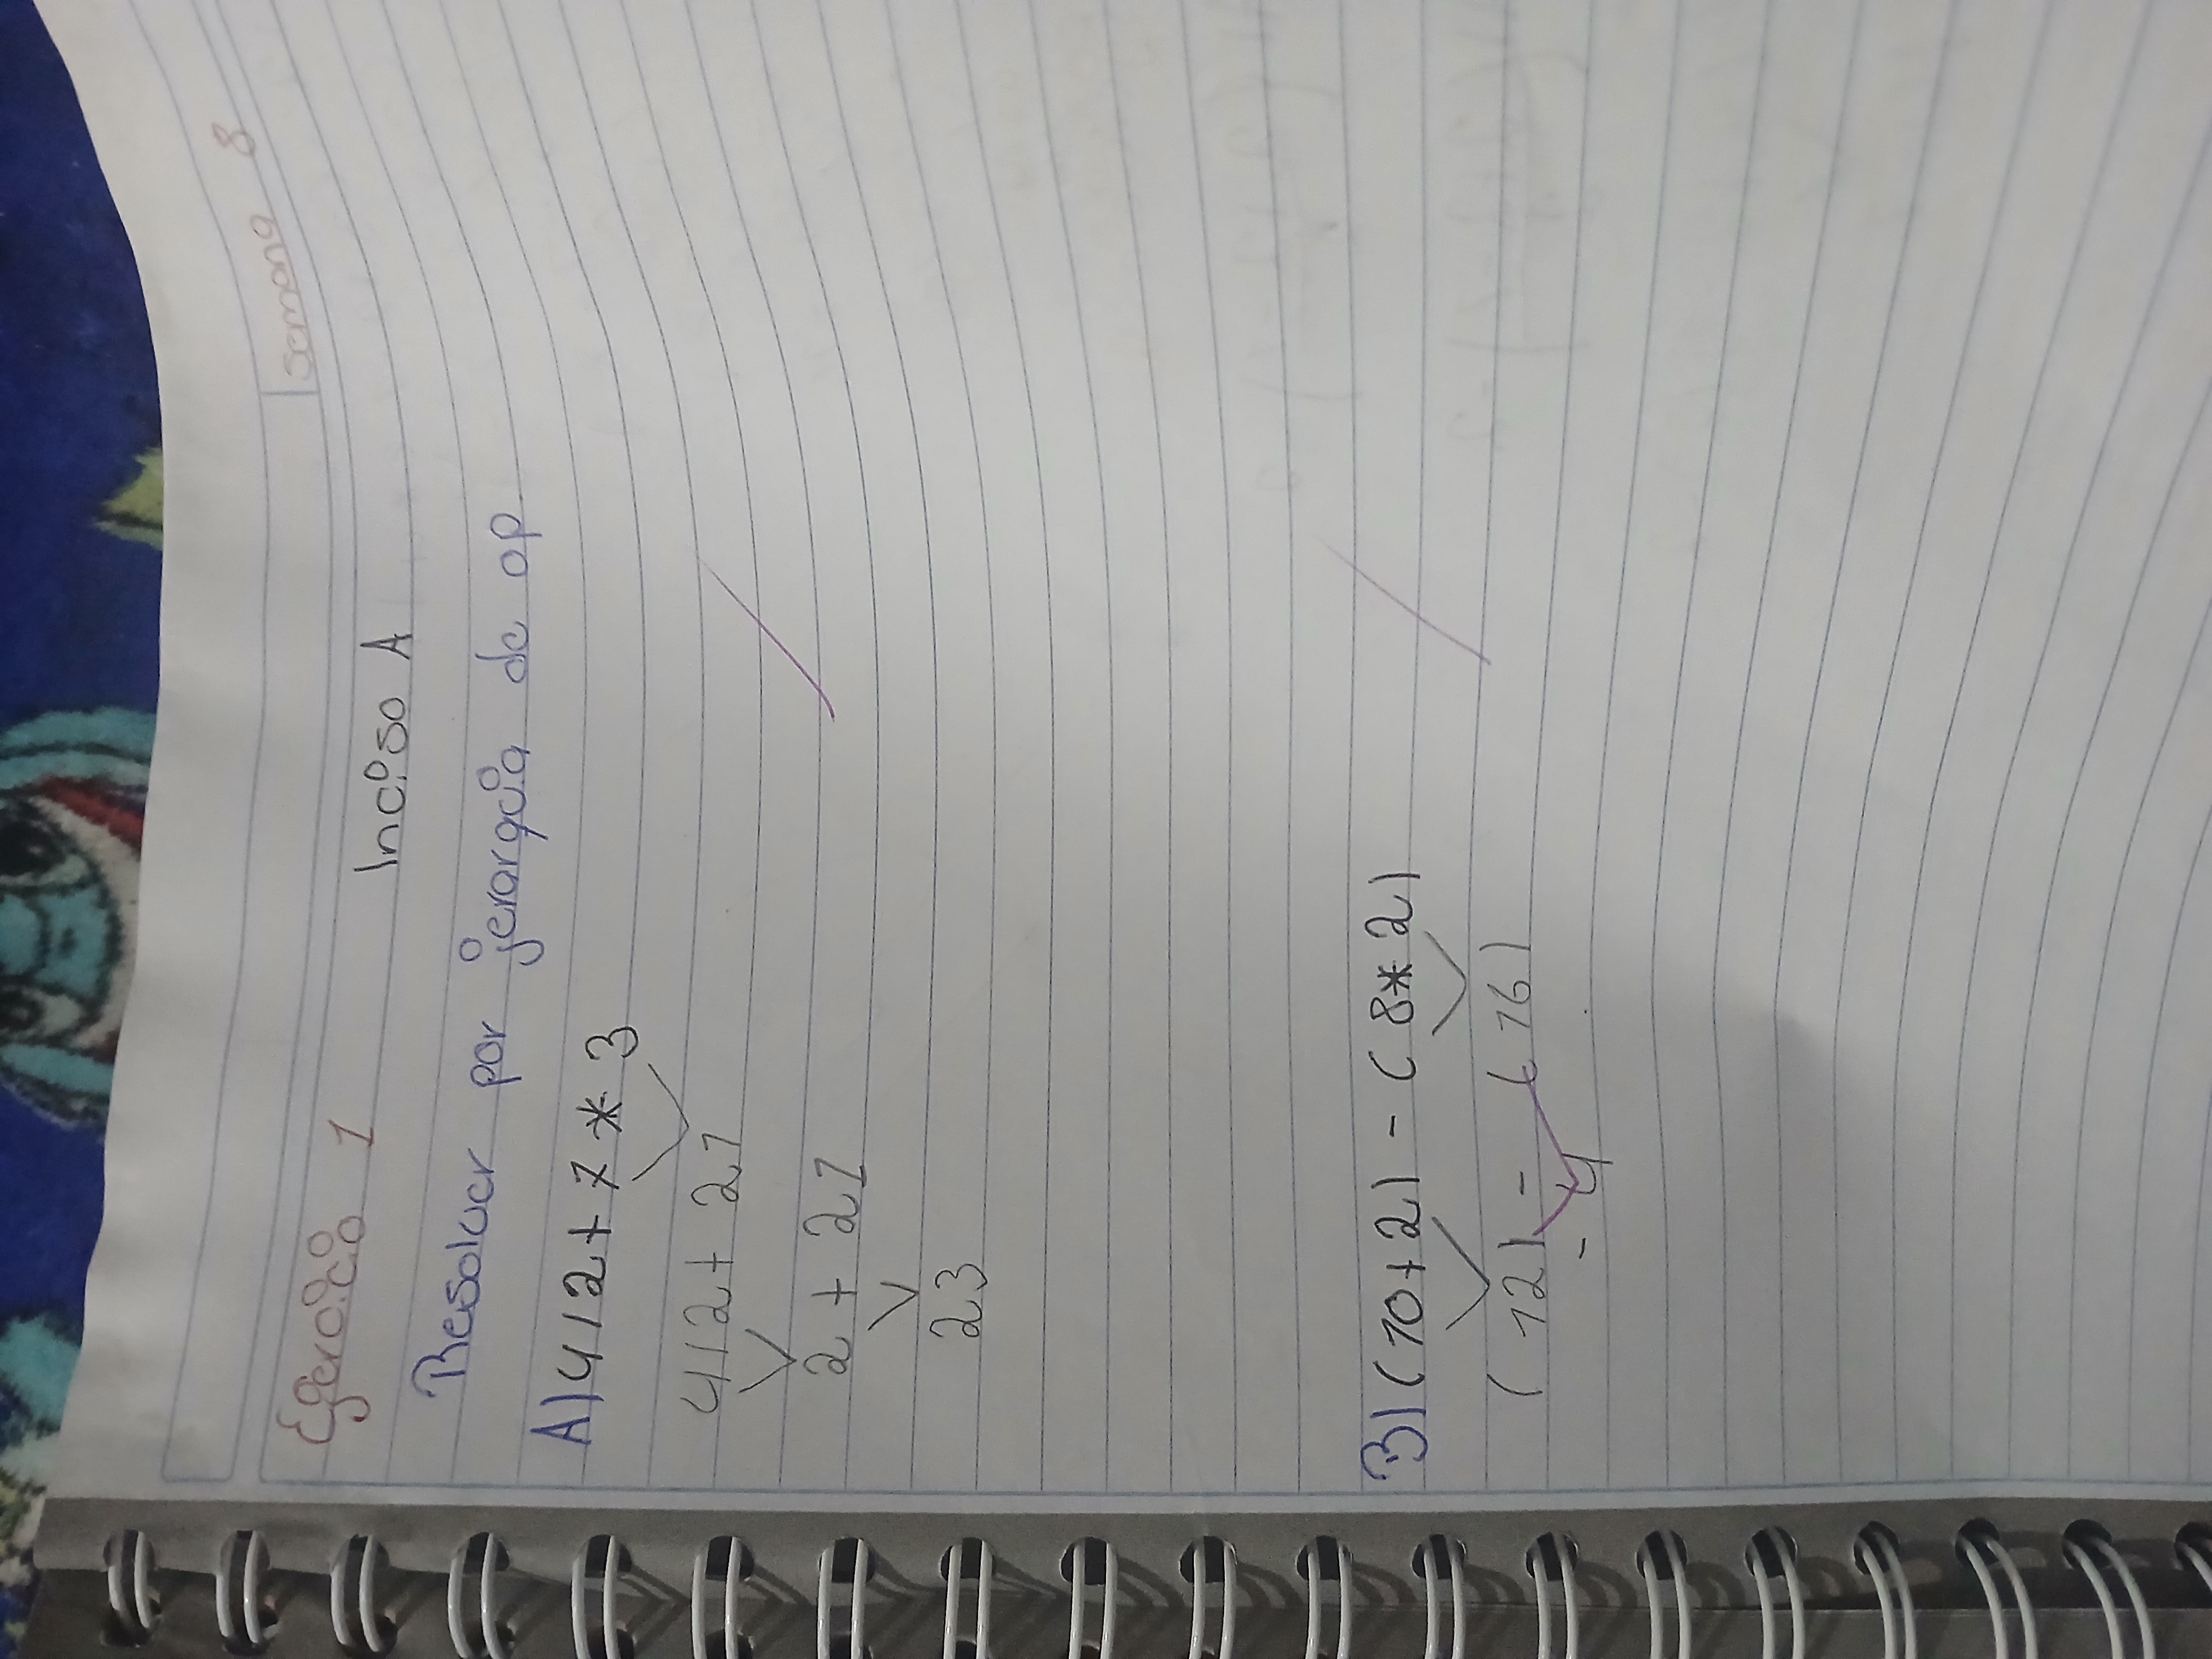 Semana 8
Egercicio 1 Inciso A
Resolver por jerarqia de op
A) 4/2+7*3
4/2+21
2+21
23
B) (10+2) - (8*2)
(12) - (16)
-4